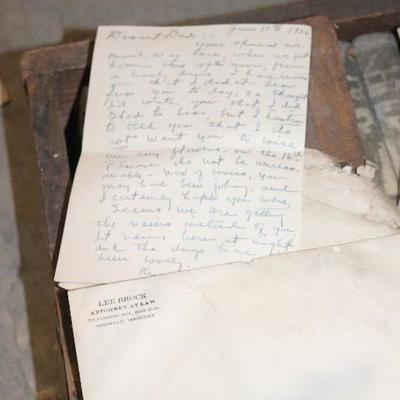 June 11th 19
Dearest Dad:-
Your special
was here, when we got
home this afternoon from
a lovely drive. I had
you that I didn't hear
from you to day, so thought
I'd write you that I did.
Glad to hear, but I hasten
to tell you that I do
not want you to wire
me any flowers on the 16th
Please do not be unreas-
onable - Now of course, you
may have been joking, and
I certainly hope you were.
Seems we are getting
the rains instead of you
It rains here at night
and the days have
been lovely
LEE BROCK
ATTORNEY AT LAW
NASHVILLE, TENNESSEE